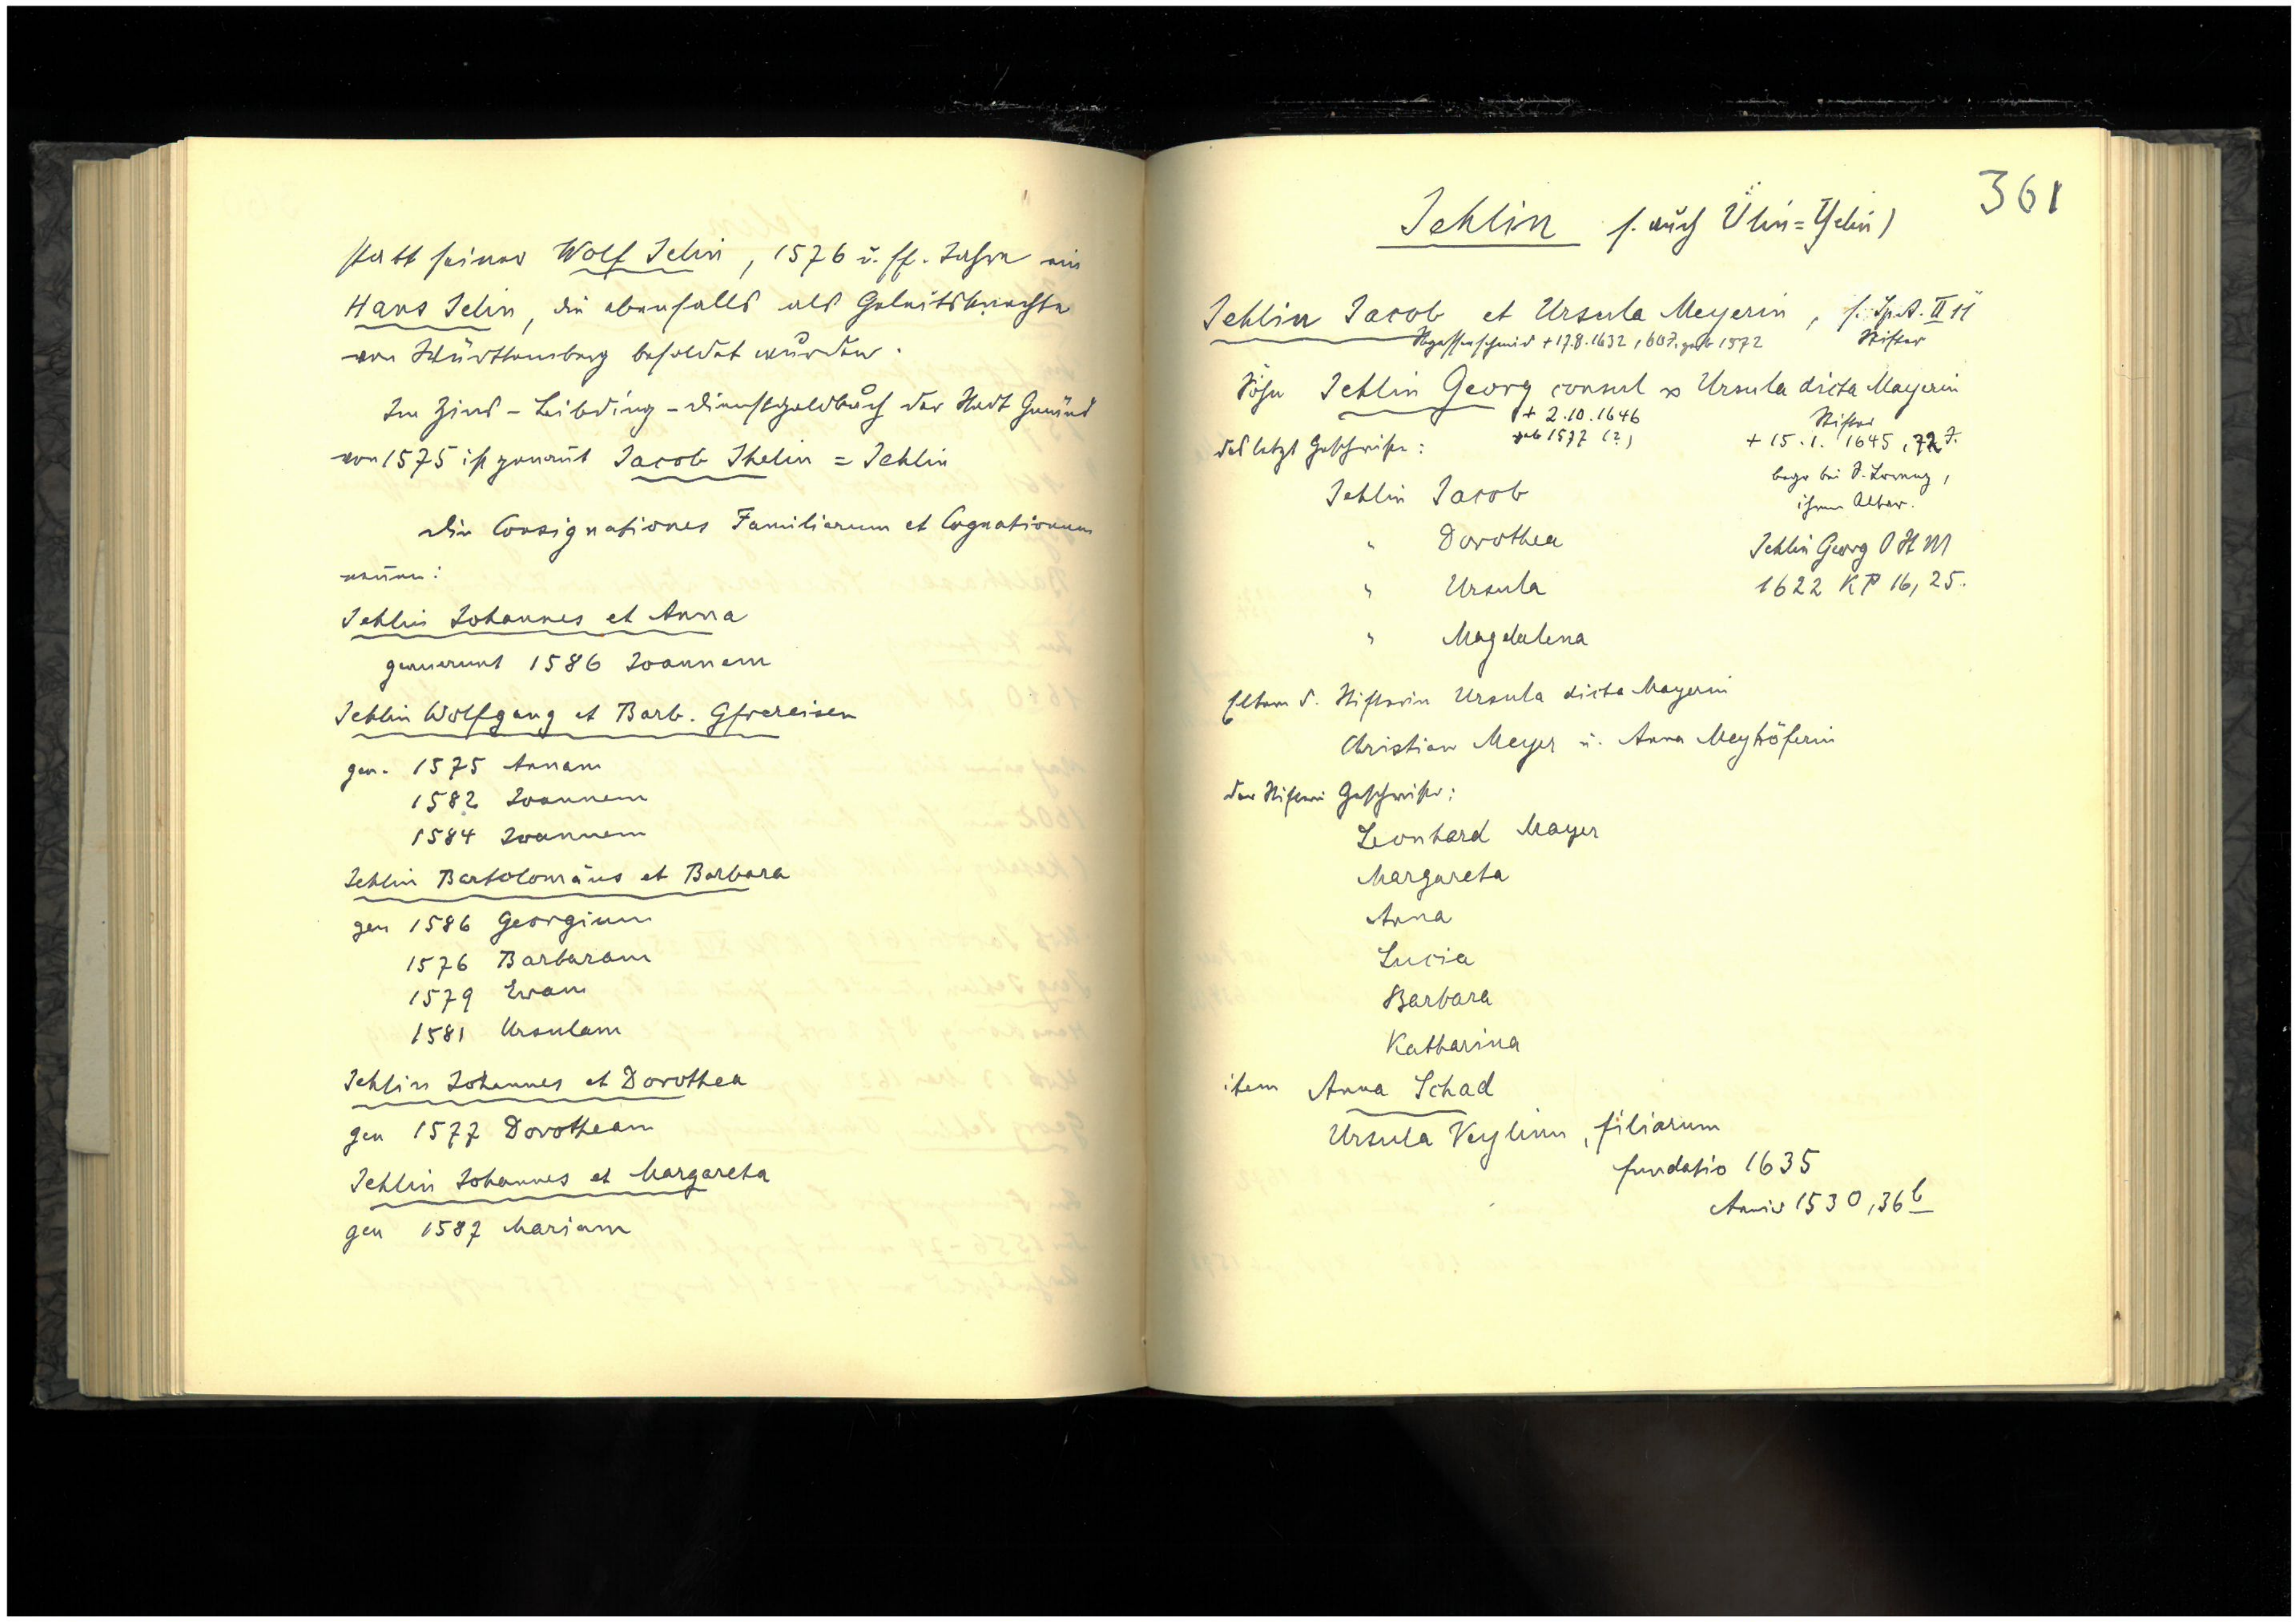 statt seiner Wolf Jelin, 1576 u. ff. Jahre ein
Hans Jelin, die ebenfalls als Geleitsknechte
von Württemberg besoldet wurden.
Im Zins-Leibding-Dienstgeldbuch der Stadt Gmünd
von 1575 ist genannt Jacob Jhelin = Jehlin
Die Consignationes Familiarum et Cognationum
nennen:
Jehlin Johannes et Anna
genuerunt 1586 Joannem
Jehlin Wolfgang et Barb. Gfrereisen
gen. 1575 Annam
1582 Joannem
1584 Joannem
Jehlin Bartolomäus et Barbara
gen 1586 Georgium
1576 Barbaram
1579 Evam
1581 Ursulam
Jehlin Johannes et Dorothea
gen 1577 Dorotheam
Jehlin Johannes et Margareta
gen 1587 Mariam
361
Jehlin s. auch Ülin=Yelin)
Jehlin Jacob et Ursula Meyerin, s. Sp.A. II 11
+ 17.8.1632, 60 J. geb 1572 Stifter
Söhn Jehlin Georg consul ∞ Ursula dicta Mayerin
+ 2.10.1646 Stifter
geb 1577 (?) + 15.1. 1645, 72 J.
des letzt Geschwister:
begr bei S. Lorenz,
ihrem Altar.
Jehlin Jacob
" Dorothea
Jehlin Georg O St M
" Ursula
1622 KP 16, 25.
" Magdalena
Eltern d. Stifterin Ursula dicta Mayerin
Christian Meyer u. Anna Meyhöferin
der Stifterin Geschwister:
Leonhard Mayer
Margareta
Anna
Lucia
Barbara
Katharina
item Anna Schad
Ursula Veylinn, filiarum
fundatio 1635
Anniv 1530, 36b